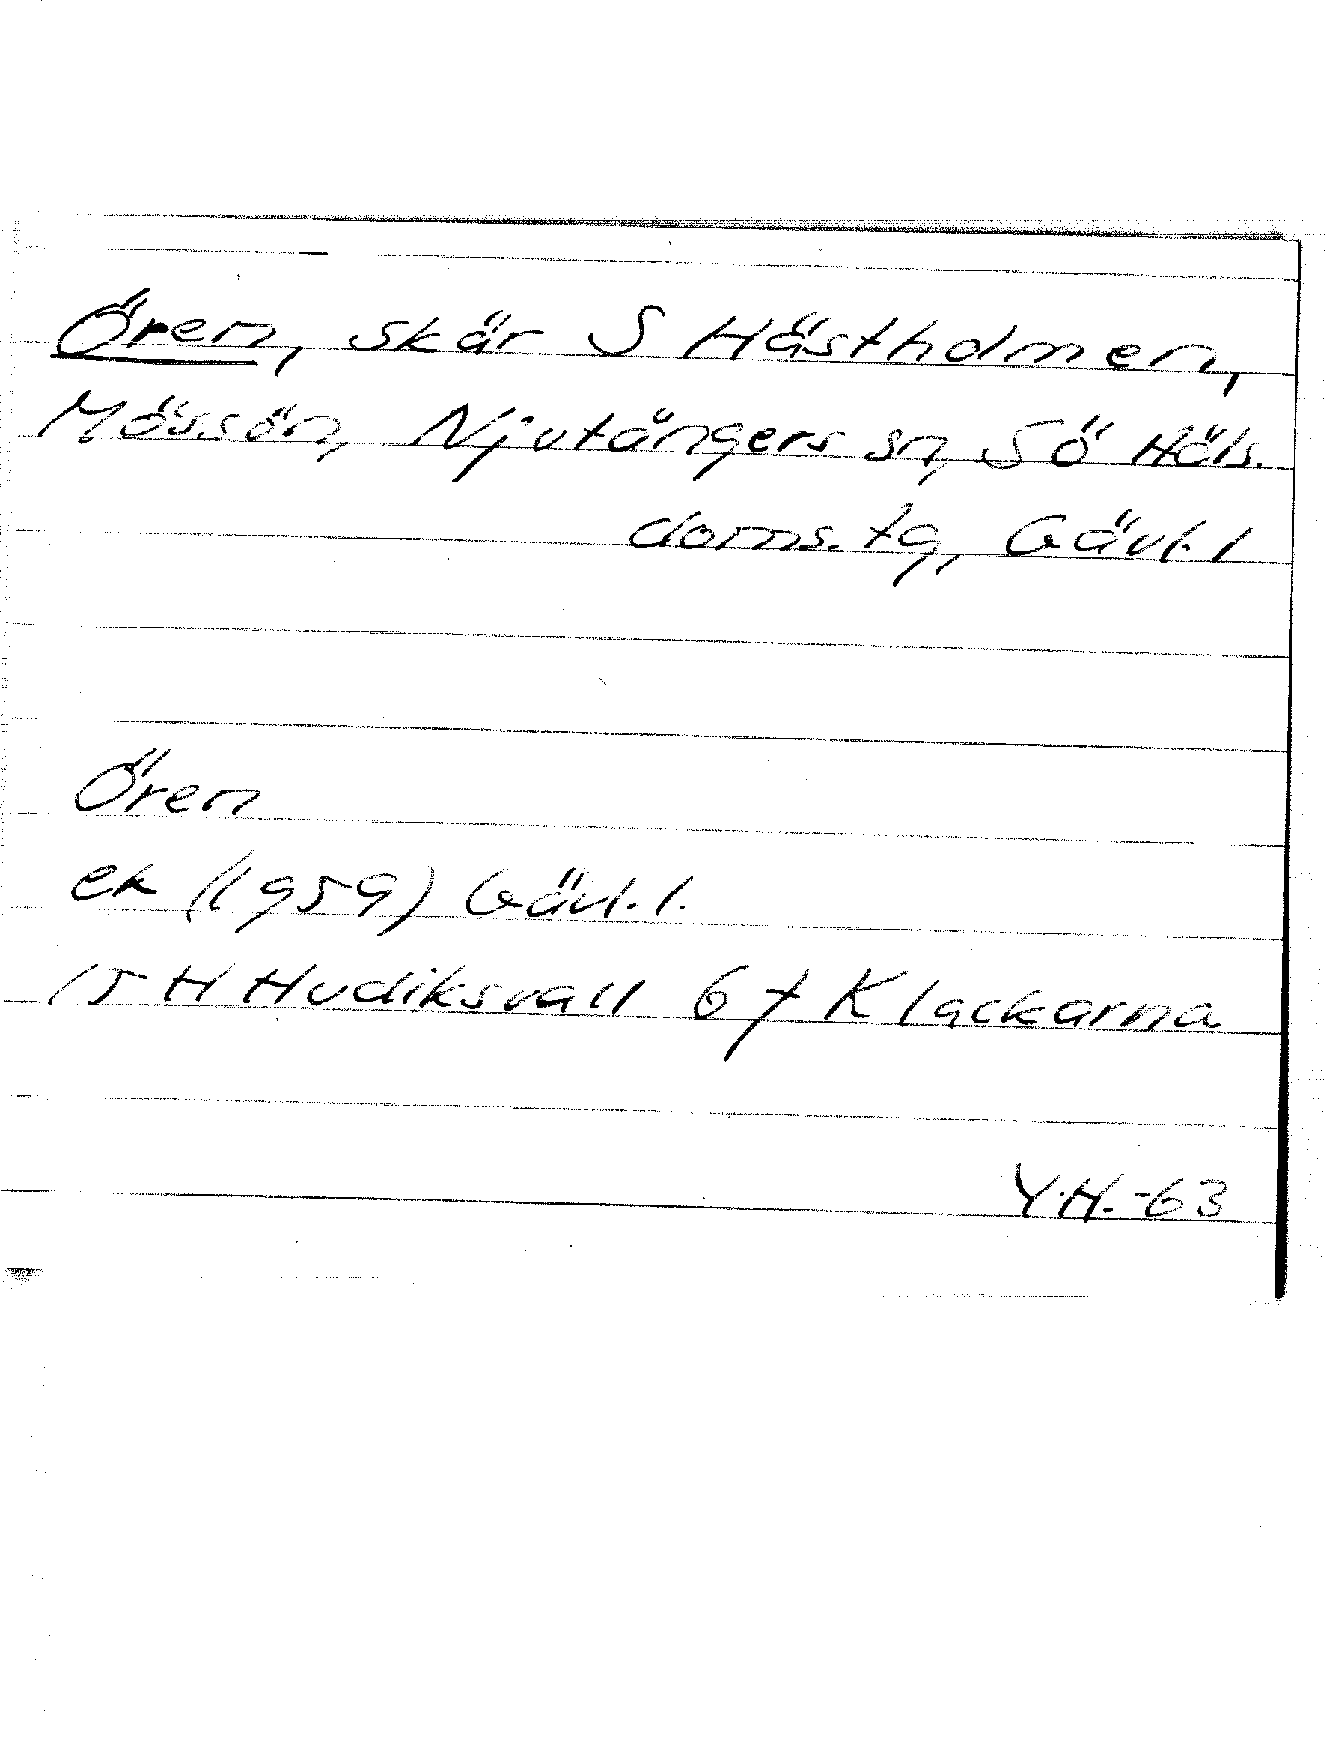 Ören, skär S Hästholmen,
Mössön, Njutångers sn, SÖ Häls.
doms.tg, Gävl.l
Ören
ek (1959) Gävl.l.
15 H Hudiksvall 6 f Klackarna
Y.H.-63